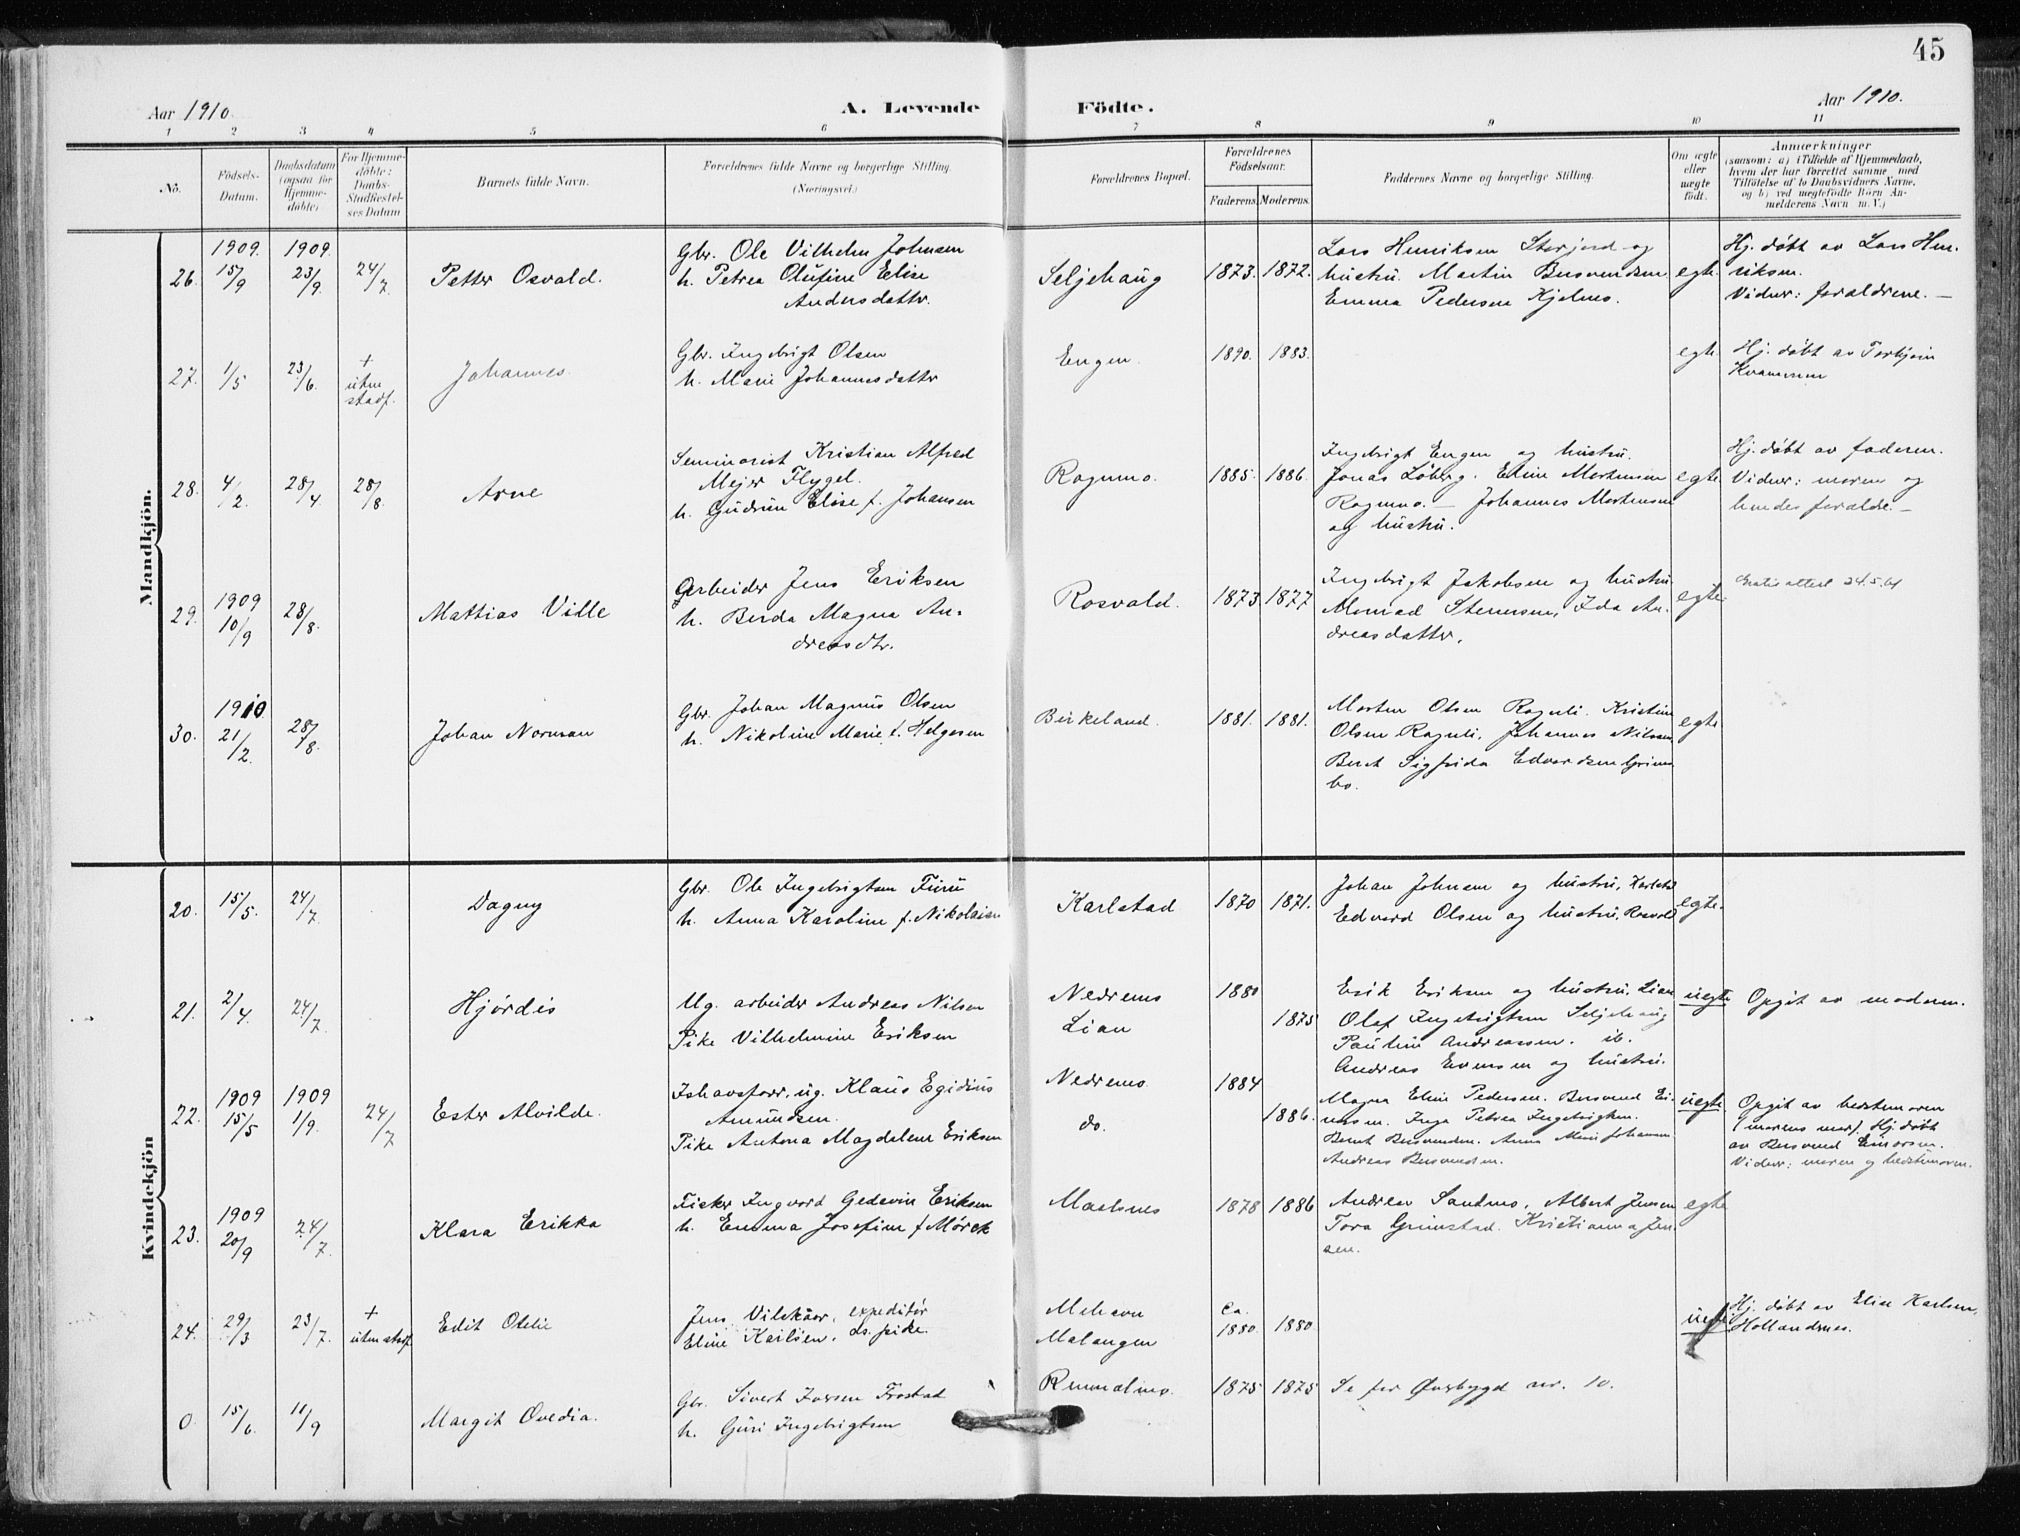 45
Aar 1910.
A. Levende
Födte.
Aar 1910.
1 2 3 4 5 6 7 8 9 10 11
No.
Födsels-
Datum.
Daabsdatum
(ogsaa for
Hjemme-
döbte)
For Hjemme-
döbte:
Daabs-
Stadfæstel-
ses Datum
Barnets fulde Navn.
Forældrenes fulde Navne og borgerlige Stilling.
(Næringsvei.)
Forældrenes Bopæl.
Forældrenes
Födselsaar.
Faderens. Moderens.
Faddernes Navne og borgerlige Stilling.
Om ægte
eller
uægte
födt.
Anmærkninger
(saasom: a) i Tilfælde af Hjemmedaab,
hvem der har forrettet samme, med
Tilföielse af to Daabsvidners Navne,
og b) ved uægtefödte Börn An-
melderens Navn m. V.)
Mandkjön.
26. 1909. 15/9 1909. 23/9. 24/7. Petter Osvald.
Gbr. Ole Vilhelm Johnsen
h. Petrea Olufine Elise
Andersdatter.
Seljehaug 1873. 1872.
Lars Henriksen Storjord og
hustru. Martin Bersvendsen
Emma Pedersen Kjelmo.
egte.
Hj. döbt av Lars Hen-
riksen.
Vidner: forældrene. —
27. 1/5 23/6. + uten stadf. Johannes.
Gbr. Ingebrigt Olsen
h. Marie Johannesdatter
Engen. 1890. 1883.
egte.
Hj. döbt av Torbjörn
Kvammen
28. 4/2. 28/4 28/8. Arne
Seminarist Kristian Alfred
Mejer Flygel.
h. Gudrun Elise f. Johansen
Rognmo. 1885. 1886.
Ingebrigt Engen og hustru.
Jonas Löberg. Eline Mortensen
Rognmo. — Johannes Mortensen
og hustru.
egte
Hj. döbt av faderen.
Vidner: moren og
hendes forældre. —
29. 1909 10/9 28/8. Mattias Ville
Garbeider Jens Eriksen
h. Berda Magna An-
dreasdtr.
Rosvald. 1873 1877
Ingebrigt Jakobsen og hustru
Monrad Stenersen, Ida An-
dreasdatter.
egte.
Gratis attest 24.5.61
30. 1910 21/2. 28/8. Johan Norman
Gbr. Johan Magnus Olsen
h. Nikoline Marie f. Helgesen
Birkeland. 1881. 1881.
Morten Olsen Rognli. Kristine
Olsen Rognli, Johannes Nilssen,
Berit Sigfrida Edvardsen Grims-
bo.
egte
Kvindekjön
20. 15/5. 24/7. Dagny
Gbr. Ole Ingebrigtsen Furu
h. Anna Karoline f. Nikolaisen
Karlstad 1870 1871.
Johan Johnsen og hustru, Karlstad
Edvard Olsen og hustru, Rosvold
egte.
21. 2/4. 24/7. Hjördis
Ug. arbeider Andreas Nilsen
Pike Vilhelmine Eriksen
Nedremo 1880
Lian 1875
Erik Eriksen og hustru, Lian
Olaf Ingebrigtsen Seljehaug
Pauline Andreassen. ib.
Andreas Evensen og hustru.
uegte
Opgit av moderen.
22. 1909 15/5 1909 1/9. 24/7 Ester Alvilde.
Ishavsfarer, ug. Klaus Egidius
Amundsen.
Pike Antona Magdalene Eriksen
Nedremo 1884
do. 1886.
Magna Eline Pedersen. Bersvend Ei-
narsen. Inga Petrea Ingebrigtsen.
Bernt Bersvendsen. Anna Marie Johansen
Andreas Bersvendsen.
uegte.
Opgit av bedstemoren
(morens mor). Hj. döbt
av Bersvend Einarsen.
Vidner: moren og bedstemoren.
23. 1909 20/9 24/7. Klara Erikka
Fisker Ingvard Gedevin Eriksen
h. Emma Josefine f. Mörck
Maalsnes 1878 1886
Andreas Sandmo, Albert Jensen
Tora Grimstad. Kristianna Jen-
sen.
egte
24. 29/3 23/7. + uten stadf. Edit Otelie
Jens Vilskåer, expeditör
Eline Karlsen, Ls. pike.
Mehavn ca. 1880
Malangen 1880
uegte
Hj. döbt av Elise Karlsen,
Hollandsnes.
0. 15/6. 11/9 Margit Ovedia.
Gbr. Sivert Iversen Frostad
h. Guri Ingebrigtsen
Rundmo. 1875 1875 Se for Øverbygd nr. 10.